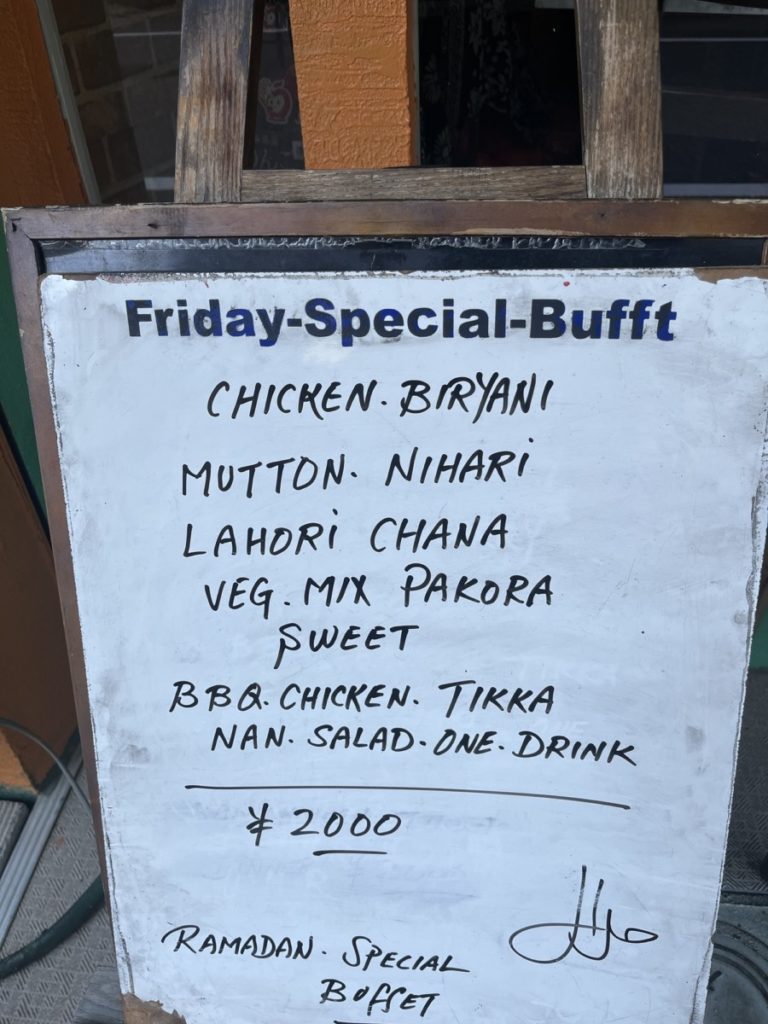 Friday-Special-Bufft
CHICKEN. BIRYANI
MUTTON. NIHARI
LAHORI CHANA
VEG. MIX PAKORA
SWEET
BBQ. CHICKEN. TIKKA
NAN. SALAD. ONE. DRINK
¥ 2000
حلال
RAMADAN. SPECIAL
BUFFET